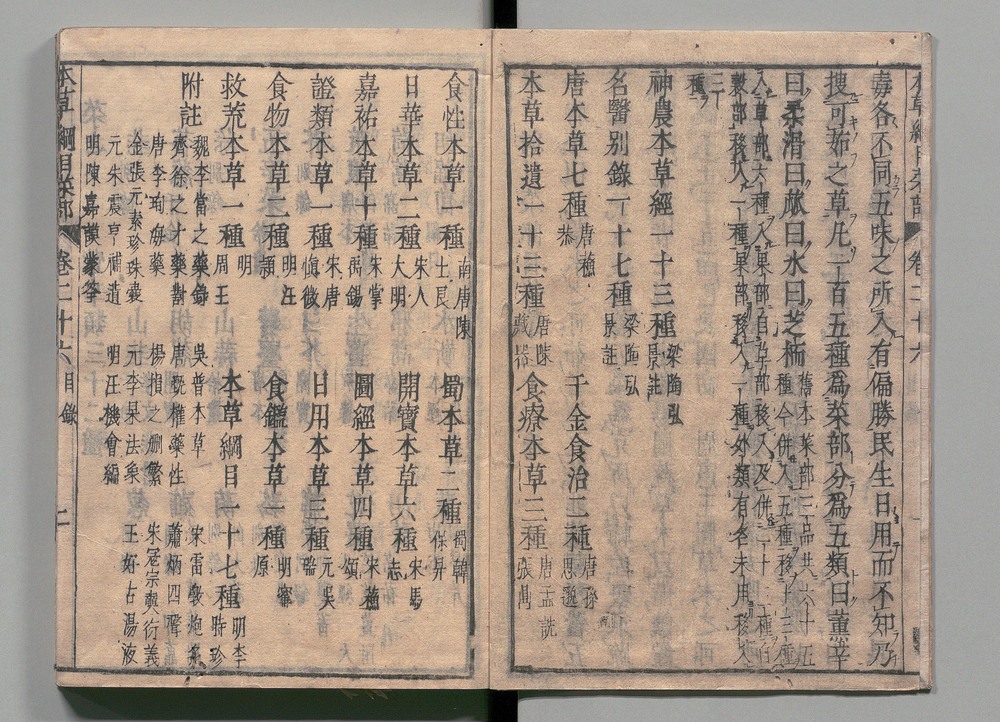 毒各不同五味之所入有偏勝民生日用而不知乃
搜可茹之草凡一百五種爲菜部分爲五類曰薰辛
曰柔滑曰蓏曰水曰芝栭 舊本菜部三品共六十五種今併入五種移十三種
入草部六種入果部自
種
神農本草經一十三種 梁陶弘景註
名醫別錄一十七種 梁陶弘景註
唐本草七種 唐蘇恭
千金食治二種 唐孫思邈
本草拾遺一十三種 唐陳藏器
食療本草三種 唐孟詵張鼎
食性本草一種 南唐陳士良
蜀本草二種 蜀韓保昇
日華本草二種 宋人大明
開寶本草六種 宋馬志
嘉祐本草十種 宋掌禹錫
圖經本草四種 宋蘇頌
證類本草一種 宋唐慎微
日用本草三種 元吳瑞
食物本草二種 明汪穎
食鑑本草一種 明甯原
救荒本草一種 明周王
本草綱目一十七種 明李時珍
附註
魏李當之藥錄 吳普本草 宋雷斅炮炙
齊徐之才藥對 唐甄權藥性 蕭炳四聲
唐李珣海藥 楊損之刪繁 宋寇宗奭衍義
金張元素珍珠囊 元李杲法象 王好古湯液
元朱震亨補遺 明汪機會編
明陳嘉謨蒙筌
本草綱目菜部 卷二十六 目錄 二